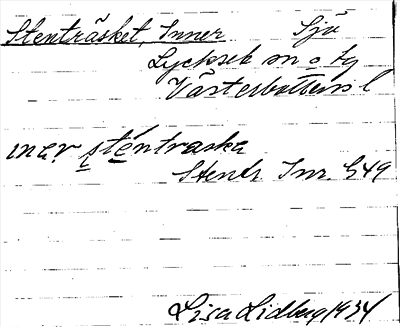 Stenträsket, Inner Sjö
Lycksele sn o tg
Västerbottens l
ɪnar stentraska
Stentr Inr. G49
Lisa Lidberg 1934